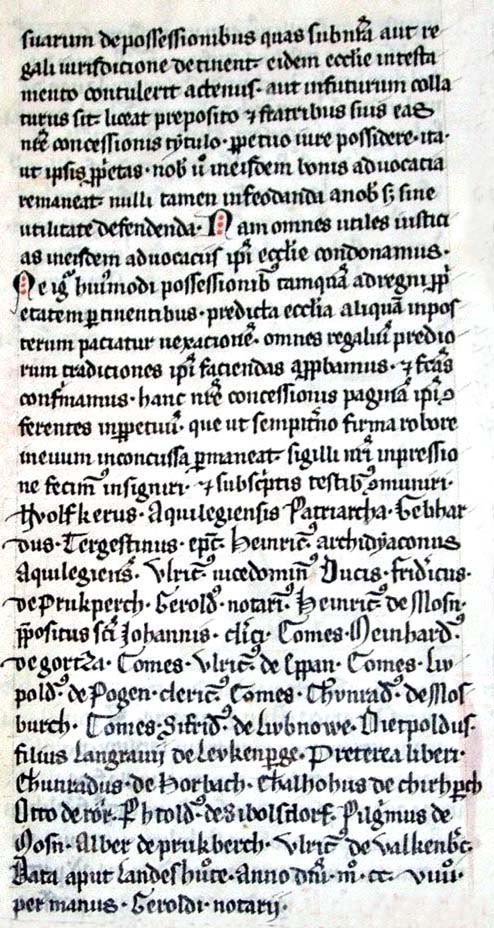 suarum de possessionibus quas sub nr̃a aut re
gali iurisdicione detinent eidem ecclie in testa
mento contulerĩt actenus · aut in futurum colla
turus sit · liceat preposito ⁊ fratribus suis eas
nr̃e concessionis tytulo · ꝑpetuo iure possidere · ita ·
ut ipsis ꝓprietas · nob̃ ũ in eisdem bonis aduocatia
remaneat nulli tamen infeodanda a nob̃ sꝫ sine
utilitate defendenda · Nam omnes utiles iustici
as in eisdem aduocaciis ipĩ ecclie condonamus ·
Ne igᷓ huiꝰmodi possessionibꝰ tamquã ad regni ꝓpri
etatem ꝑtinentibus · predicta ecclia aliquã inpos
terum paciatur uexacionẽ · omnes regaliũ predio
rum tradiciones ipĩ faciendas aꝓbamus · ⁊ fc̃as
confirmamus · hanc nr̃e concessionis paginã ipĩ
ferentes inꝑpetuũ · que ut sempitꝰno firma robore
in euum inconcussa ꝑmaneat sigilli nr̃i inpressio
ne fecimꝰ insigniri · ⁊ subscᵖtis testibꝰ ꝯmuniri ·
Wolfkerus · Aquilegiensis Patriarcha · Gebhar
dus · Tergestinus · epc̃ · Heinricꝰ archidyaconus
Aquilegienꝰ · Vlricꝰ uicedominꝰ Ducis · fridʼicus ·
de Prukperch · Geroldꝰ · notariꝰ · Heinricꝰ de Mosn ·
p̃positus sc̃i Johannis · clʼici · Comes · Meinhardꝰ
de gortza · Comes · vlricꝰ de Eppan · Comes · Liv
poldꝰ · de Pogen · clericꝰ Comes · Chv̊nradꝰ · de Mos
burch · Comes · Sifridꝰ de Livbnowe · Dietpoldus ·
filius Langrauii de Levkenꝑge · Preterea liberi ·
Chunradus · de Horbach · Chalhohus de chirhꝑch
Otto de rorʼ · Phtoldꝰ · de Sibolsdorf · Pilgᵢmus de
Mosn · Alber de prukberch · Vlricꝰ de valkenbʼc ·
Data aput Landeshůte · Anno dñi · mͦ · cc · viiiiͦ ·
per manus · Geroldi · notarij ·